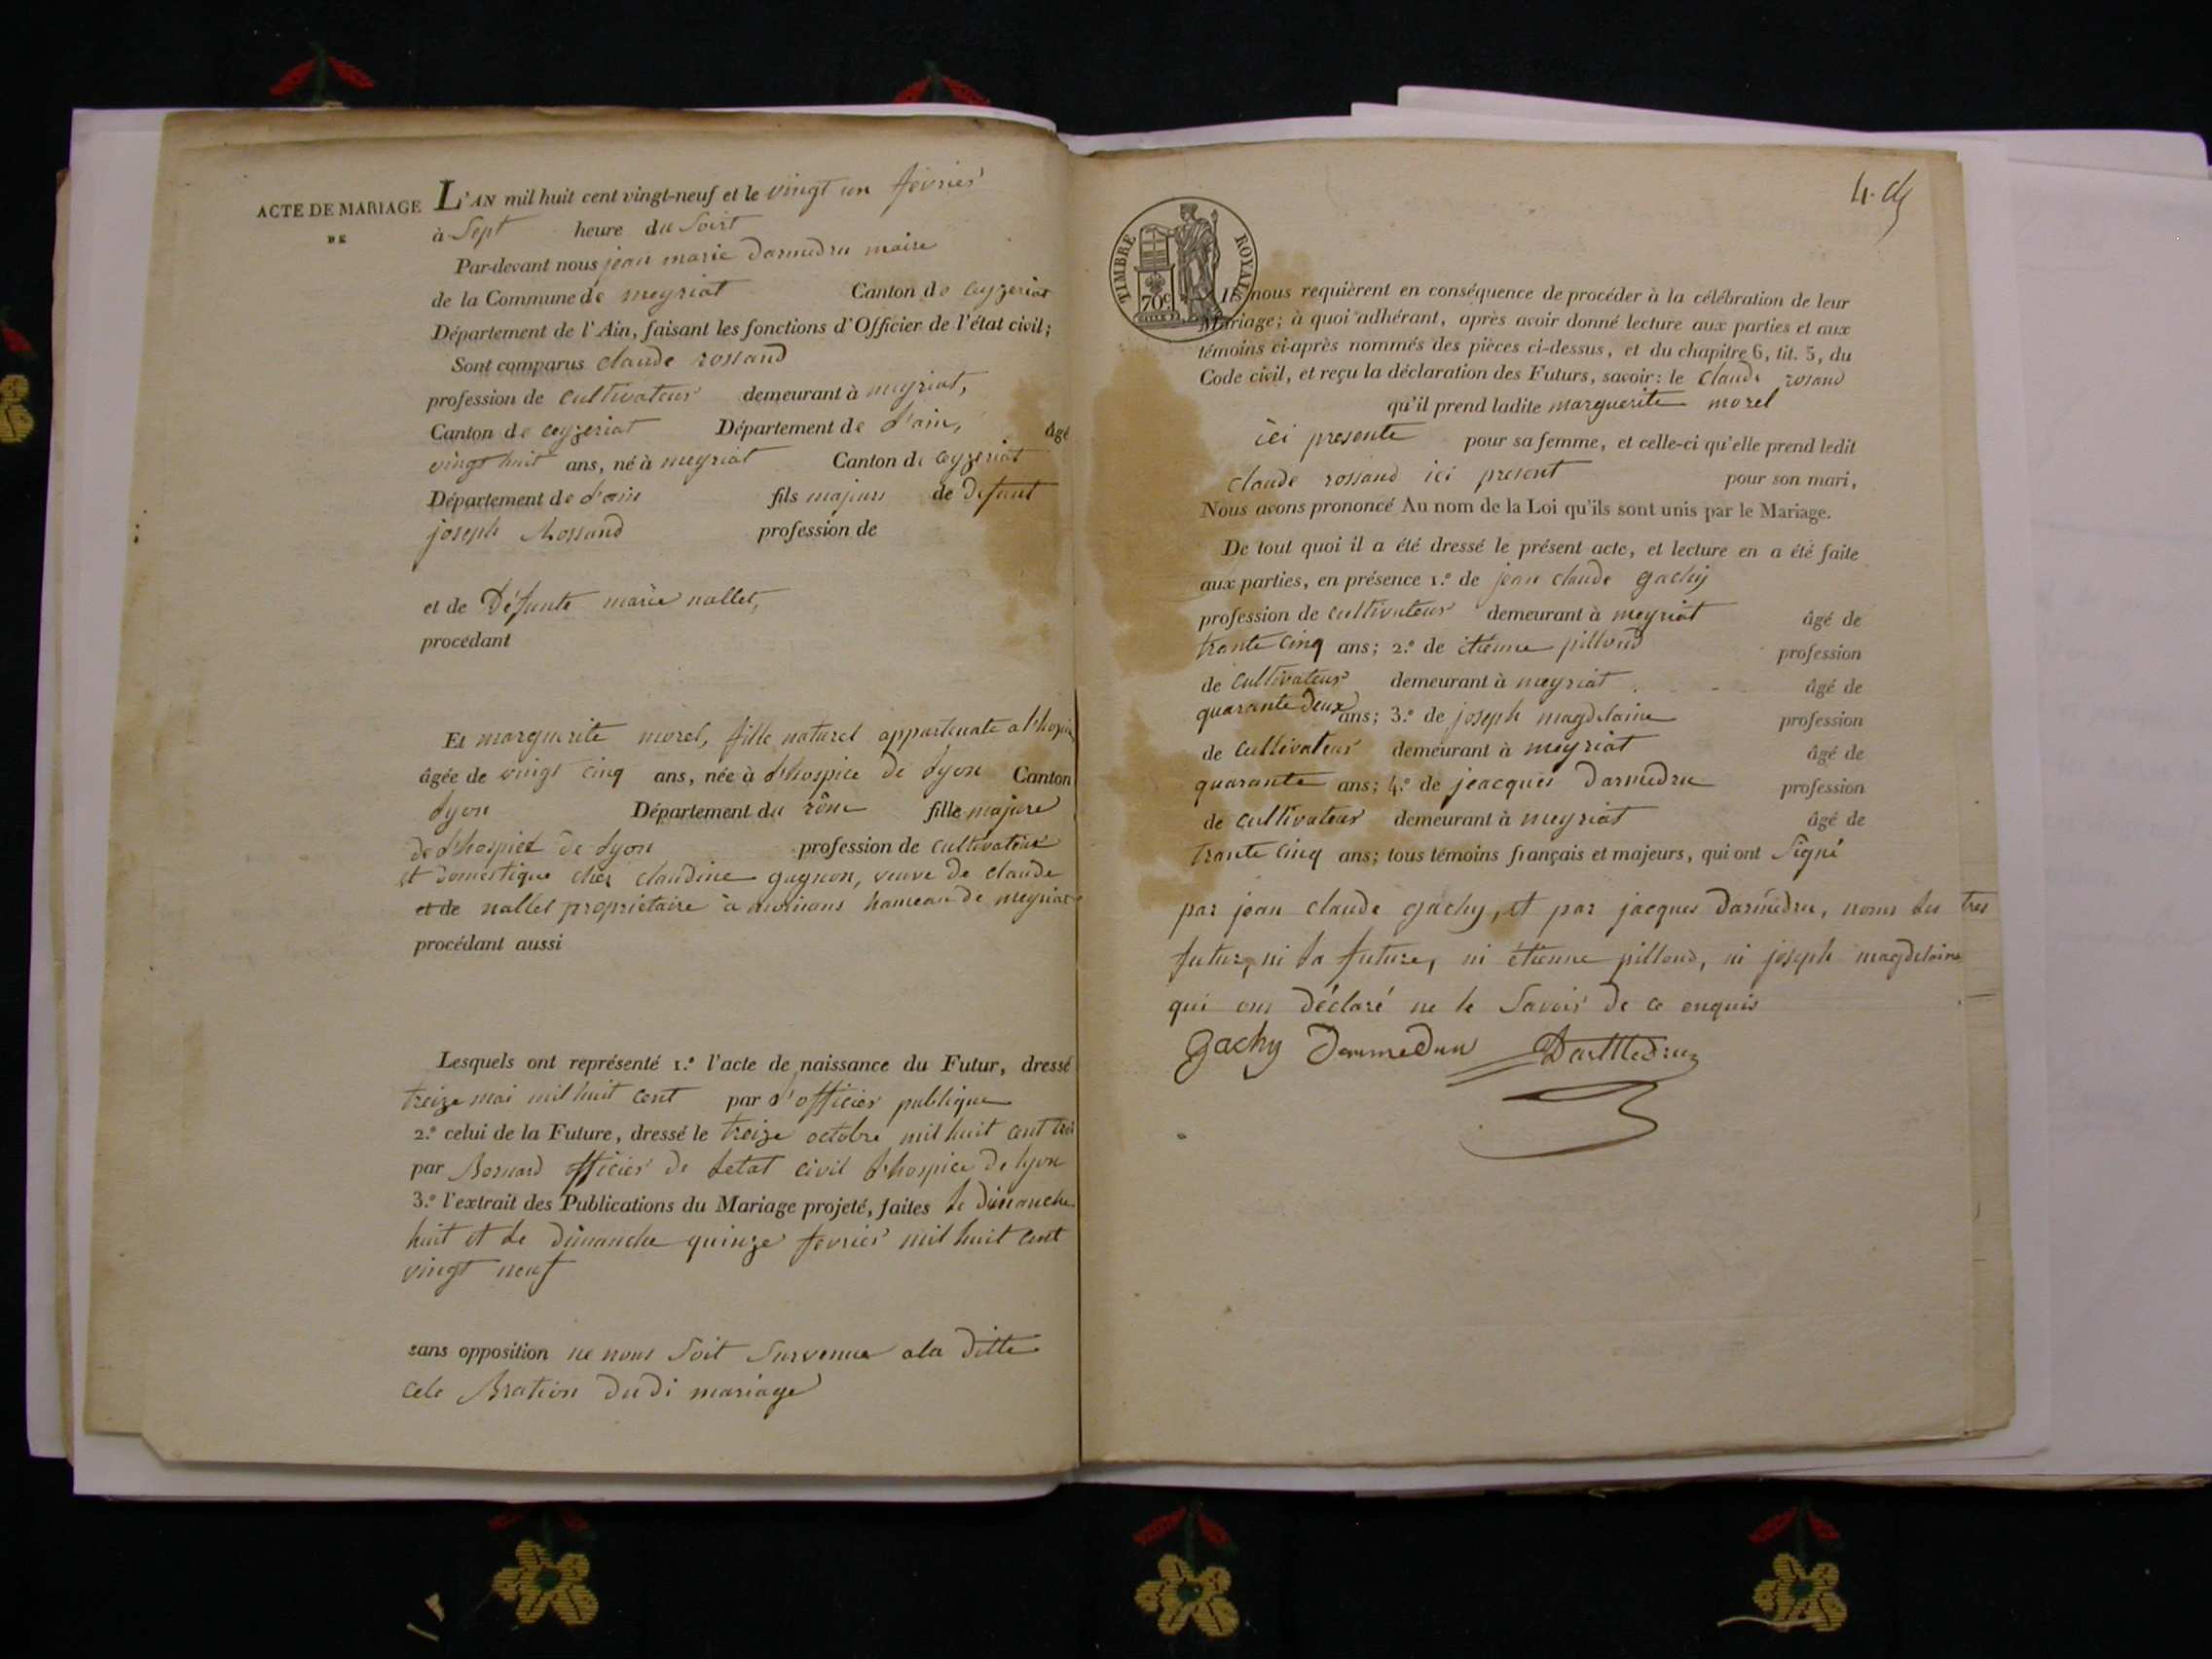 ACTE DE MARIAGE
DE
L'AN mil huit cent vingt-neuf et le vingt un fevrier
à Sept heure du Soirt
Par-devant nous jean marie Darmedru maire
de la Commune de meyriat Canton de ceyzeriat
Département de l'Ain, faisant les fonctions d'Officier de l'état civil;
Sont comparus claude rossand
profession de cultivateur demeurant à meyriat,
Canton de ceyzeriat Département de l'ain, âgé
vingt huit ans, né à meyriat Canton de ceyzeriat
Département de l'ain fils majeur de Defunt
joseph Rossand profession de
et de Défunte marie nallet,
procédant
Et marguerite morel, fille naturel appartenate a l'hospice
âgée de vingt cinq ans, née à l'hospice de Lyon Canton
Lyon Département du rône fille majure
de l'hospice de Lyon profession de cultivateur
et domestique chez claudine gugnon, veuve de claude
et de nallet propriétaire à hameau de meyriat
procédant aussi
Lesquels ont représenté 1.º l'acte de naissance du Futur, dressé
treize mai mil huit cent par l'officier publique
2.º celui de la Future, dressé le treize octobre mil huit cent trois
par Bernard officier de letat civil l'hospice de lyon
3.º l'extrait des Publications du Mariage projeté, faites le dimanche
huit et le Dimanche quinze fevrier mil huit cent
vingt neuf
sans opposition ne nous soit survenue a la ditte
cele Bration dudi mariage
4. 
TIMBRE ROYAL
70 c
Ils nous requièrent en conséquence de procéder à la célébration de leur
Mariage; à quoi adhérant, après avoir donné lecture aux parties et aux
témoins ci-après nommés des pièces ci-dessus, et du chapitre 6, tit. 5, du
Code civil, et reçu la déclaration des Futurs, savoir: le claude rosand
qu'il prend ladite marguerite morel
ici presente pour sa femme, et celle-ci qu'elle prend ledit
claude rossand ici present pour son mari,
Nous avons prononcé Au nom de la Loi qu'ils sont unis par le Mariage.
De tout quoi il a été dressé le présent acte, et lecture en a été faite
aux parties, en présence 1.º de jean claude gachy
profession de cultivateur demeurant à meyriat âgé de
trante cinq ans; 2.º de étienne pilloud profession
de cultivateur demeurant à meyriat âgé de
quarante deux ans; 3.º de joseph magdelaine profession
de cultivateur demeurant à meyriat âgé de
quarante ans; 4.º de jeacques Darmedru profession
de cultivateur demeurant à meyriat âgé de
trante cinq ans; tous témoins français et majeurs, qui ont signé
par jean claude gachy, et par jacques Darmédru,
futur, ni la future, ni étienne pilloud, ni joseph magdelaine
qui ont déclaré ne le Savoir de ce enquis
gachy Darmedru Darmedru